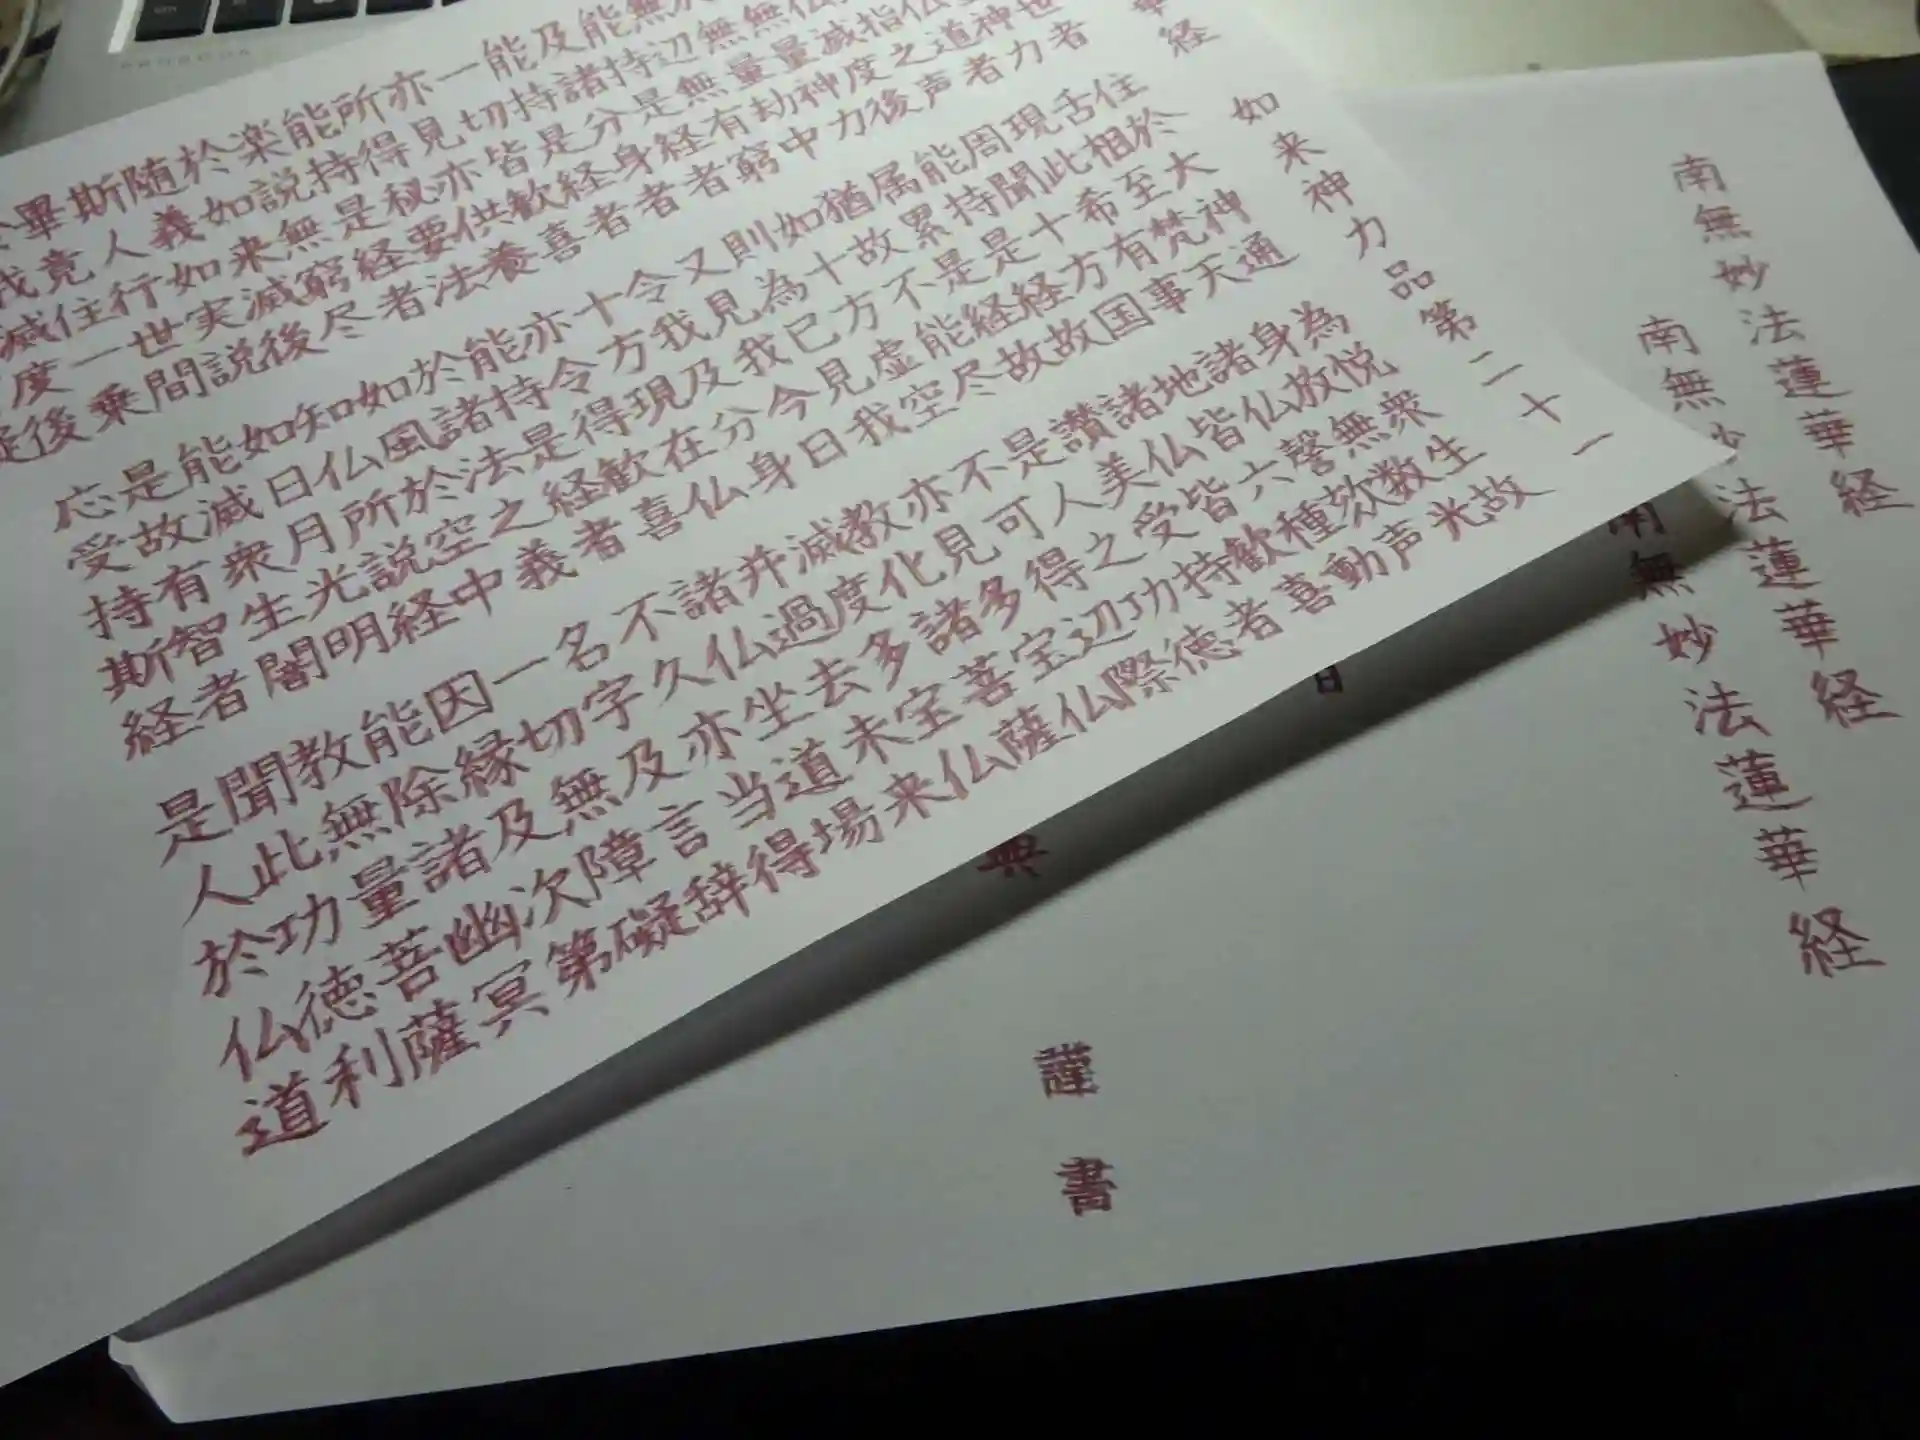 華経
如来神力品第二十一
世者 住於大神通 為悦衆生故
神力 舌相至梵天 身放無数光
仏道者 現此希有事 諸仏謦欬声
指之声 周聞十方国 地皆六種動
仏滅度後 能持是経故 諸仏皆歓喜
無量神力 属累是経故 讃美受持者
於無量劫中 猶故不能尽 是人之功徳
無辺無有窮 如十方虚空 不可得辺際
能持是経者 則為已見我 亦見多宝仏
及諸分身者 又見我今日 教化諸菩薩
能持是経者 令我及分身 滅度多宝仏
一切皆歓喜 十方現在仏 并過去未来
亦見亦供養 亦令得歓喜 諸仏坐道場
所得秘要法 能持是経者 不久亦当得
能持是経者 於諸法之義 名字及言辞
楽説無窮尽 如風於空中 一切無障礙
於如来滅後 知仏所説経 因縁及次第
随義如実説 如日月光明 能除諸幽冥
斯人行世間 能滅衆生闇 教無量菩薩
畢竟住一乗 是故有智者 聞此功徳利
我滅度後 応受持斯経 是人於仏道
南無妙法蓮華経
南無妙法蓮華経
南無妙法蓮華経
日
謹書